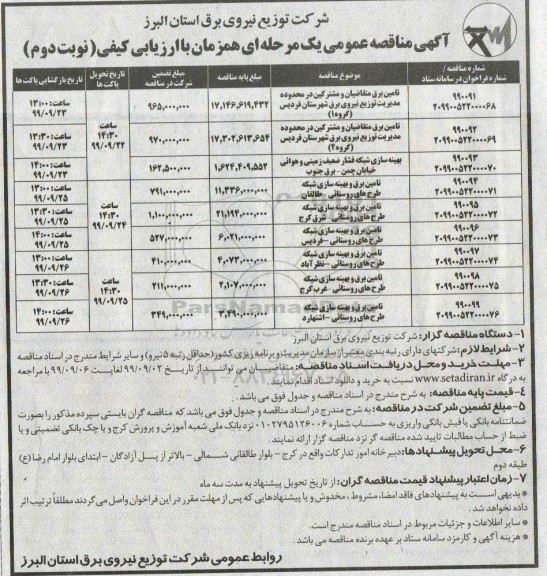 شرکت توزیع نیروی برق استان البرز
آگهی مناقصه عمومی یک مرحله ای همزمان با ارزیابی کیفی (نوبت دوم)
شماره مناقصه / شماره فراخوان در سامانه ستاد	موضوع مناقصه	مبلغ پایه مناقصه	مبلغ تضمین شرکت در مناقصه	تاریخ تحویل پاکت ها	تاریخ بازگشایی پاکت ها
۹۹۰۰۹۱ ۲۰۹۹۰۰۵۲۲۰۰۰۰۶۸	تامین برق متقاضیان و مشترکین در محدوده مدیریت توزیع نیروی برق شهرستان فردیس (گروه۱)	۱۷,۱۴۶,۶۱۹,۴۳۲	۹۶۵,۰۰۰,۰۰۰	ساعت ۱۴:۳۰ ۹۹/۰۹/۲۲	ساعت: ۱۳:۰۰ ۹۹/۰۹/۲۳
۹۹۰۰۹۲ ۲۰۹۹۰۰۵۲۲۰۰۰۰۶۹	تامین برق متقاضیان و مشترکین در محدوده مدیریت توزیع نیروی برق شهرستان فردیس (گروه۲)	۱۷,۳۰۲,۶۱۳,۶۵۴	۹۷۰,۰۰۰,۰۰۰	ساعت: ۱۳:۳۰ ۹۹/۰۹/۲۳
۹۹۰۰۹۳ ۲۰۹۹۰۰۵۲۲۰۰۰۰۷۰	بهینه سازی شبکه فشار ضعیف زمینی و هوائی خیابان چمن - برق جنوب	۱,۶۲۴,۴۰۹,۵۵۲	۱۶۲,۵۰۰,۰۰۰	ساعت: ۱۴:۰۰ ۹۹/۰۹/۲۳
۹۹۰۰۹۴ ۲۰۹۹۰۰۵۲۲۰۰۰۰۷۱	تامین برق و بهینه سازی شبکه طرح های روستائی - طالقان	۱۱,۳۳۶,۰۰۰,۰۰۰	۷۹۱,۰۰۰,۰۰۰	ساعت ۱۴:۳۰ ۹۹/۰۹/۲۴	ساعت: ۱۳:۰۰ ۹۹/۰۹/۲۵
۹۹۰۰۹۵ ۲۰۹۹۰۰۵۲۲۰۰۰۰۷۲	تامین برق و بهینه سازی شبکه طرح های روستائی - شرق کرج	۲۱,۱۹۴,۰۰۰,۰۰۰	۱,۱۰۰,۰۰۰,۰۰۰	ساعت: ۱۳:۳۰ ۹۹/۰۹/۲۵
۹۹۰۰۹۶ ۲۰۹۹۰۰۵۲۲۰۰۰۰۷۳	تامین برق و بهینه سازی شبکه طرح های روستائی - فردیس	۶,۰۲۱,۰۰۰,۰۰۰	۵۲۷,۰۰۰,۰۰۰	ساعت: ۱۴:۰۰ ۹۹/۰۹/۲۵
۹۹۰۰۹۷ ۲۰۹۹۰۰۵۲۲۰۰۰۰۷۴	تامین برق و بهینه سازی شبکه طرح های روستائی - نظرآباد	۴,۰۷۳,۰۰۰,۰۰۰	۴۱۰,۰۰۰,۰۰۰	ساعت ۱۴:۳۰ ۹۹/۰۹/۲۵	ساعت: ۱۳:۰۰ ۹۹/۰۹/۲۶
۹۹۰۰۹۸ ۲۰۹۹۰۰۵۲۲۰۰۰۰۷۵	تامین برق و بهینه سازی شبکه طرح های روستائی - غرب کرج	۲,۱۰۷,۰۰۰,۰۰۰	۲۱۱,۰۰۰,۰۰۰	ساعت: ۱۳:۳۰ ۹۹/۰۹/۲۶
۹۹۰۰۹۹ ۲۰۹۹۰۰۵۲۲۰۰۰۰۷۶	تامین برق و بهینه سازی شبکه طرح های روستائی - اشتهارد	۳,۴۹۰,۰۰۰,۰۰۰	۳۴۹,۰۰۰,۰۰۰	ساعت: ۱۴:۰۰ ۹۹/۰۹/۲۶
۱- دستگاه مناقصه گزار: شرکت توزیع نیروی برق استان البرز
۲- شرایط لازم: شرکتهای دارای رتبه بندی معتبر از سازمان مدیریت و برنامه ریزی کشور (حداقل رتبه ۵ نیرو) و سایر شرایط مندرج در اسناد مناقصه
۳- مهلت خرید و محل دریافت اسناد مناقصه: متقاضیان می توانند از تاریخ ۹۹/۰۹/۰۲ لغایت ۹۹/۰۹/۰۶ با مراجعه
به درگاه www.setadiran.ir نسبت به خرید و دانلود اسناد اقدام نمایند.
۴- قیمت پایه مناقصه: به شرح مندرج در اسناد مناقصه و جدول فوق می باشد.
۵- مبلغ تضمین شرکت در مناقصه: به شرح مندرج در اسناد مناقصه و جدول فوق می باشد که مناقصه گران بایستی سپرده مذکور را بصورت
ضمانتنامه بانکی یا فیش بانکی واریزی به حساب شماره ۰۱۰۲۷۹۵۱۲۶۰۰۶ نزد بانک ملی شعبه آموزش و پرورش کرج و یا چک بانکی تضمینی و یا
ضبط از حساب مطالبات تایید شده مناقصه گر نزد مناقصه گزار ارائه نمایند.
۶- محل تحویل پیشنهادها: دبیرخانه امور تدارکات واقع در کرج - بلوار طالقانی شمالی - بالاتر از پل آزادگان - ابتدای بلوار امام رضا (ع)
طبقه دوم
۷- زمان اعتبار پیشنهاد قیمت مناقصه گران: از تاریخ تحویل پیشنهاد به مدت سه ماه
* بدیهی است به پیشنهادهای فاقد امضا، مشروط، مخدوش و یا پیشنهادهایی که پس از مهلت مقرر در این فراخوان واصل می گردند مطلقاً ترتیب اثر
داده نخواهد شد.
* سایر اطلاعات و جزئیات مربوط در اسناد مناقصه مندرج است.
* هزینه آگهی و کارمزد سامانه ستاد بر عهده برنده مناقصه می باشد.
روابط عمومی شرکت توزیع نیروی برق استان البرز